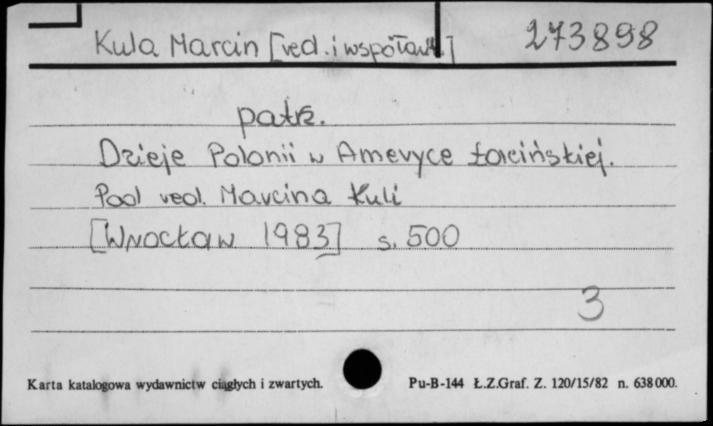 Kula Marcin [red. i współaut.] 273898
patrz.
Dzieje Polonii w Ameryce Łacińskiej.
Pod red. Marcina Kuli
[Wrocław 1983] s. 500
3
Karta katalogowa wydawnictw ciągłych i zwartych. Pu-B-144 Ł.Z.Graf. Z. 120/15/82 n. 638000.